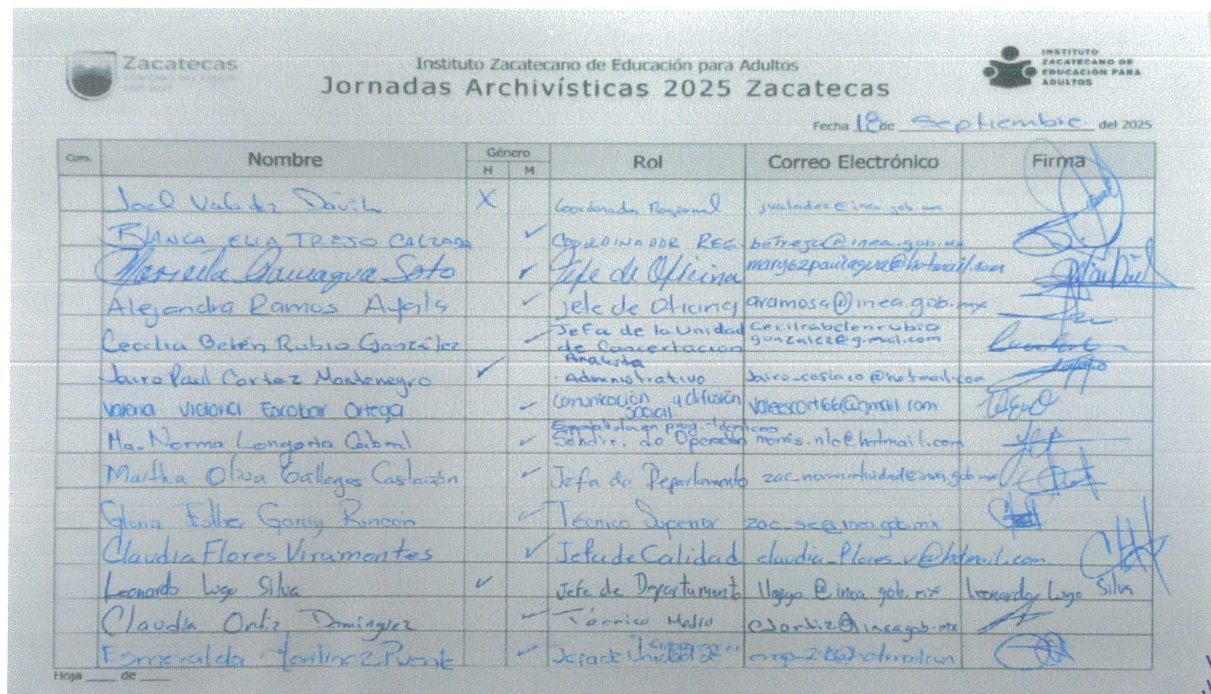 Zacatecas
Instituto Zacatecano de Educación para Adultos
Jornadas Archivísticas 2025 Zacatecas
INSTITUTO
ZACATECANO DE
EDUCACIÓN PARA
ADULTOS
Fecha 18 de Septiembre del 2025
Cons. Nombre Género Rol Correo Electrónico Firma
H M
Joel Valadez Dávila X Coordinador Regional jvaladez@inea.gob.mx
BLANCA ELIA TREJO CALZADA ✓ COORDINADOR REG. betrejo@inea.gob.mx
Maricela Paniagua Soto ✓ Jefe de Oficina mary62paniagua@hotmail.com
Alejandra Ramos Ayala ✓ Jefe de Oficina aramosa@inea.gob.mx
Cecilia Belén Rubio González ✓ Jefa de la Unidad de Concertacion
gonzalez@gmail.com
Jairo Paul Cortez Montenegro ✓ Analista Administrativo
Valeria Victoria Escobar Ortega ✓ Comunicación y difusión social. valeescort66@gmail.com
Ma. Norma Longoria Cabral ✓ de Operación morris.nlc@hotmail.com
Martha Oliva Gallegos Castañón ✓ Jefa de Departamento zac_normatividad@inea.gob.mx
Gloria Esther Rincón ✓ Técnico Superior zac_se@inea.gob.mx
Claudia Flores Viramontes ✓ Jefa de Calidad claudia_flores_v@hotmail.com
Leonardo Lugo Silva ✓ Jefe de Departamento @inea.gob.mx Leonardo Lugo Silva
Claudia Ortiz Domínguez ✓ Técnico Medio cortiz@inea.gob.mx
Esmeralda Martínez Puente ✓
Hoja ____ de ____